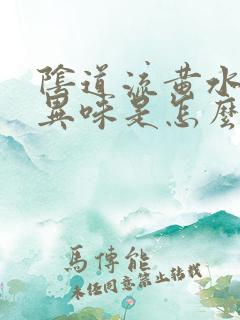 陰道流黃水
異味是怎麼
馬傳能
未经同意禁止转载